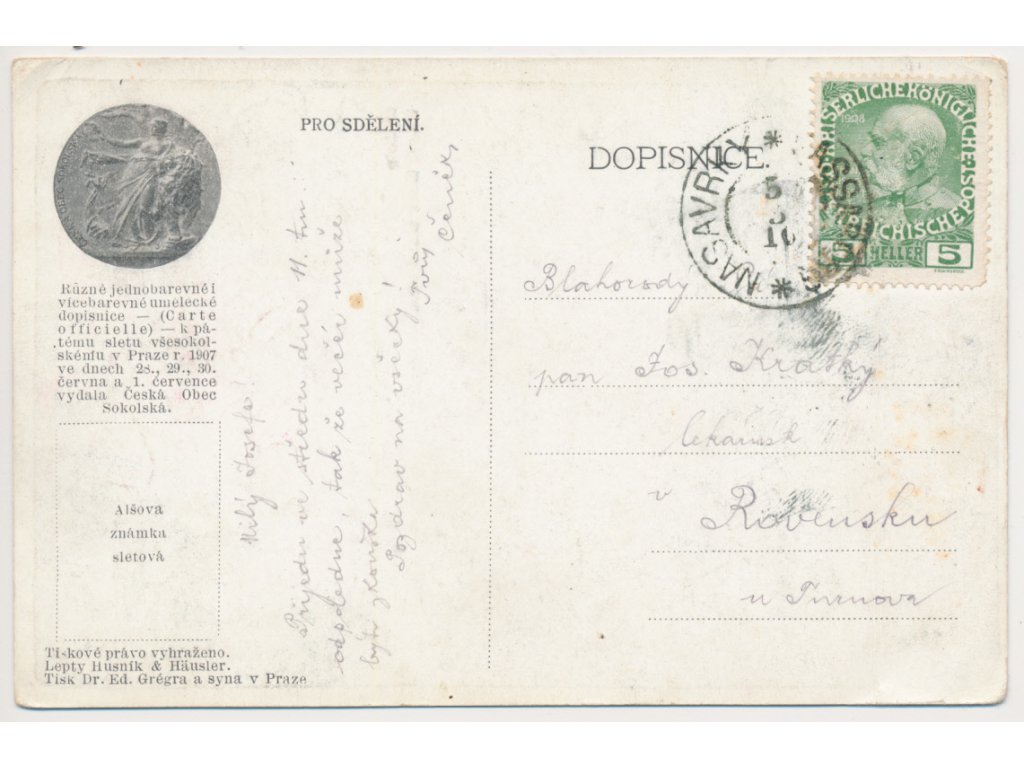 PRO SDĚLENÍ.
DOPISNICE.
Různé jednobarevné i
vícebarevné umelecké
dopisnice — (Carte
officielle) — k pá-
tému sletu všesokol-
skému v Praze r. 1907
ve dnech 28., 29., 30.
června a 1. července
vydala Česká Obec
Sokolská.
Alšova
známka
sletová
Tiskové právo vyhraženo.
Lepty Husník & Häusler.
Tisk Dr. Ed. Grégra a syna v Praze
Milý Josefe!
Přijedu ve středu dne 11. t.m.
odpoledne, tak že večer může
býti zkouška
Pozdrav na všecky!
Tvůj
Čeněk
NASAVRKY
5
1908
5 HELLER 5
Blahorody
pan Jos. Krátký
v
Rovensku
u Turnova